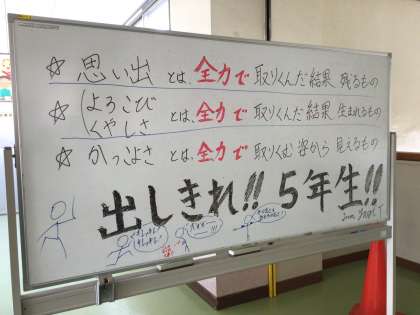 ☆ 思い出 とは、全力で 取りくんだ結果 残るもの
☆ (よろこび
くやしさ とは、全力で 取りくんだ結果 生まれるもの
☆ かっこよさ とは、全力で 取りくむ 姿から 見えるもの
出しきれ!! 5年生!!